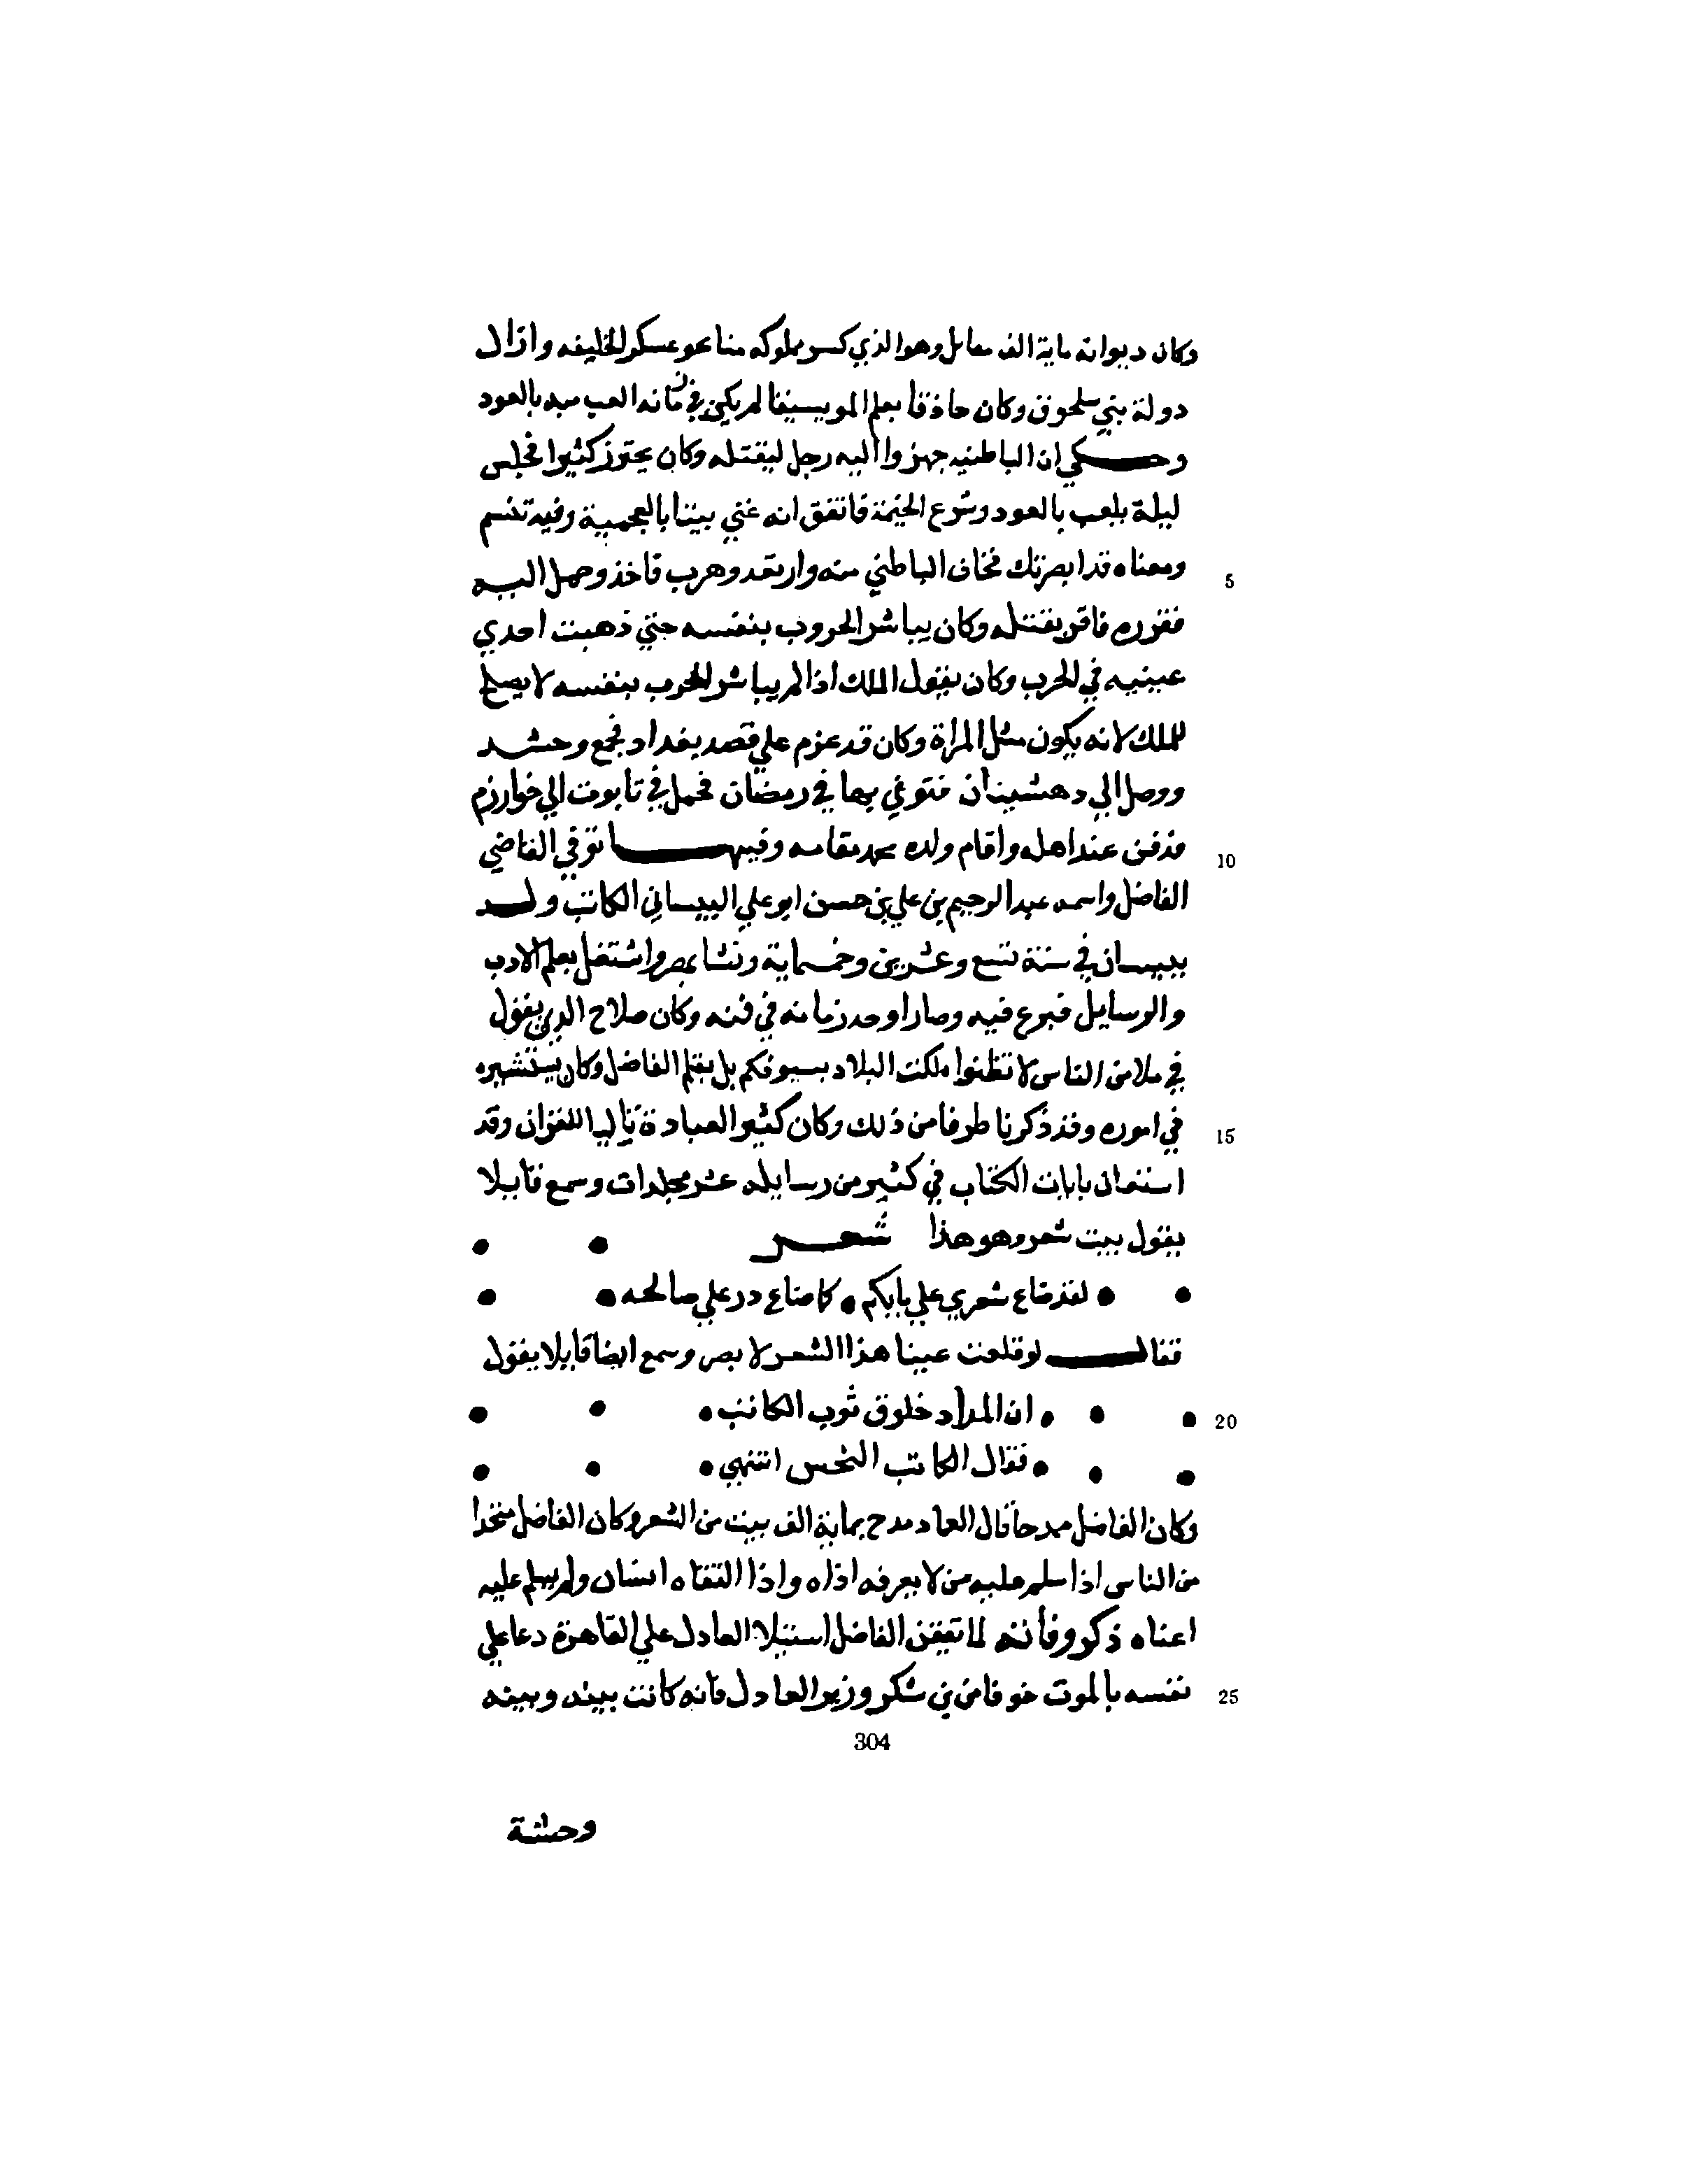 وكان ديوانه ماية الف مقاتل وهو الذي كسر مملوكه مناعو عسكر الخليفه وازال
دولة بني سلجوق وكان حاذقا بعلم الموسيقا لم يكن في زمانه العب منه بالعود
وحكي ان الباطنيه جهزوا اليه رجل ليقتله وكان يحترز كثيرا فجلس
ليلة يلعب بالعود وشرع الخيمة فاتفق انه غني بيتا بالعجمية وفيه تفسم
ومعناه قد ابصرتك فخاف الباطني منه وارتعد وهرب فاخذ وحمل اليه
فقرره فاقر بقتله وكان يباشر الحروب بنفسه حتي ذهبت احدي
عينيه في الحرب وكان يقول الملك اذا لم يباشر الحرب بنفسه لا يصلح
للملك لانه يكون مثل المراة وكان قد عزم علي قصد بغداد فجمع وحشد
ووصل الي دهشينان فتوفي بها في رمضان فحمل في تابوت الي خوارزم
فدفن عند اهله واقام ولده محمد مقامه وفيها توفي القاضي
الفاضل واسمه عبد الرحيم بن علي بن حسن ابو علي البيساني الكاتب ولد
ببيسان في سنة تسع وعشرين وخمسماية ونشا بمصر واشتغل بعلم الادب
والرسايل فبرع فيه وصار اوحد زمانه في فنه وكان صلاح الدين يقول
في ملا من الناس لا تظنوا ملكت البلاد بسيوفكم بل بقلم الفاضل وكان يستشيره
في اموره وقد ذكرنا طرفا من ذلك وكان كثير العبادة تاليا للقران وقد
استعان بايات الكتاب في كثير من رسايله عشر مجلدات وسمع قايلا
يقول بيت شعر وهو هذا شعر
لقد ضاع شعري علي بابكم • كما ضاع در علي صالحه
فقال لو قلعت عينا هذا الشعر لا بصر وسمع ايضا قايلا يقول
ان المداد خلوق ثوب الكاتب
فقال الكاتب النحس انتهي
وكان الفاضل ممدحا قال العماد مدح بماية الف بيت من الشعر وكان الفاضل متخذا
من الناس اذا سلم عليه من لا يعرفه اذاه واذا التقاه انسان ولم يسلم عليه
اعناه ذكر وفاته لما تيقن الفاضل استيلا العادل علي القاهرة دعا علي
نفسه بالموت خوفا من بن شكر وزير العادل فانه كانت بينه وبينه
304
وحشة
5
10
15
20
25